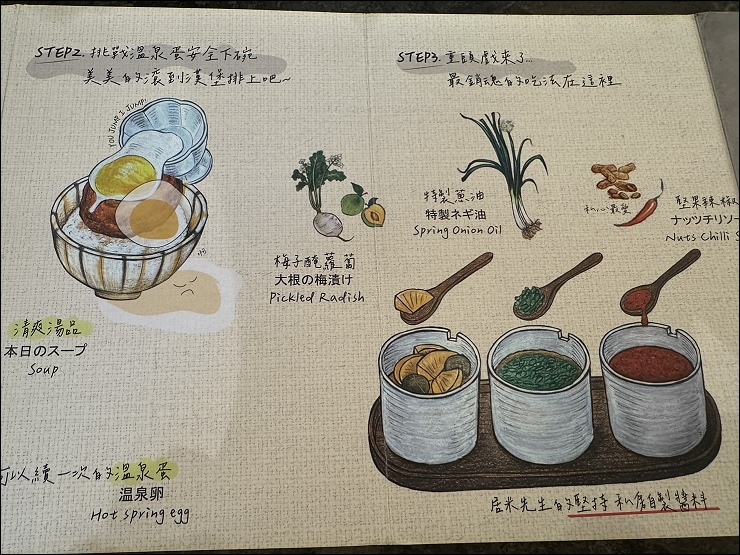 STEP2. 挑戰溫泉蛋安全下碗
美美的滾到漢堡排上吧~
YOU JUMP I JUMP!
清爽湯品
本日のスープ
Soup
可以續一次的溫泉蛋
温泉卵
Hot spring egg
梅子醃蘿蔔
大根の梅漬け
Pickled Radish
STEP3. 重頭戲來了...
最銷魂的吃法在這裡
特製蔥油
特製ネギ油
Spring Onion Oil
私心最愛
堅果辣椒
ナッツチリソー
Nuts Chilli S
居米先生的堅持 私房自製醬料